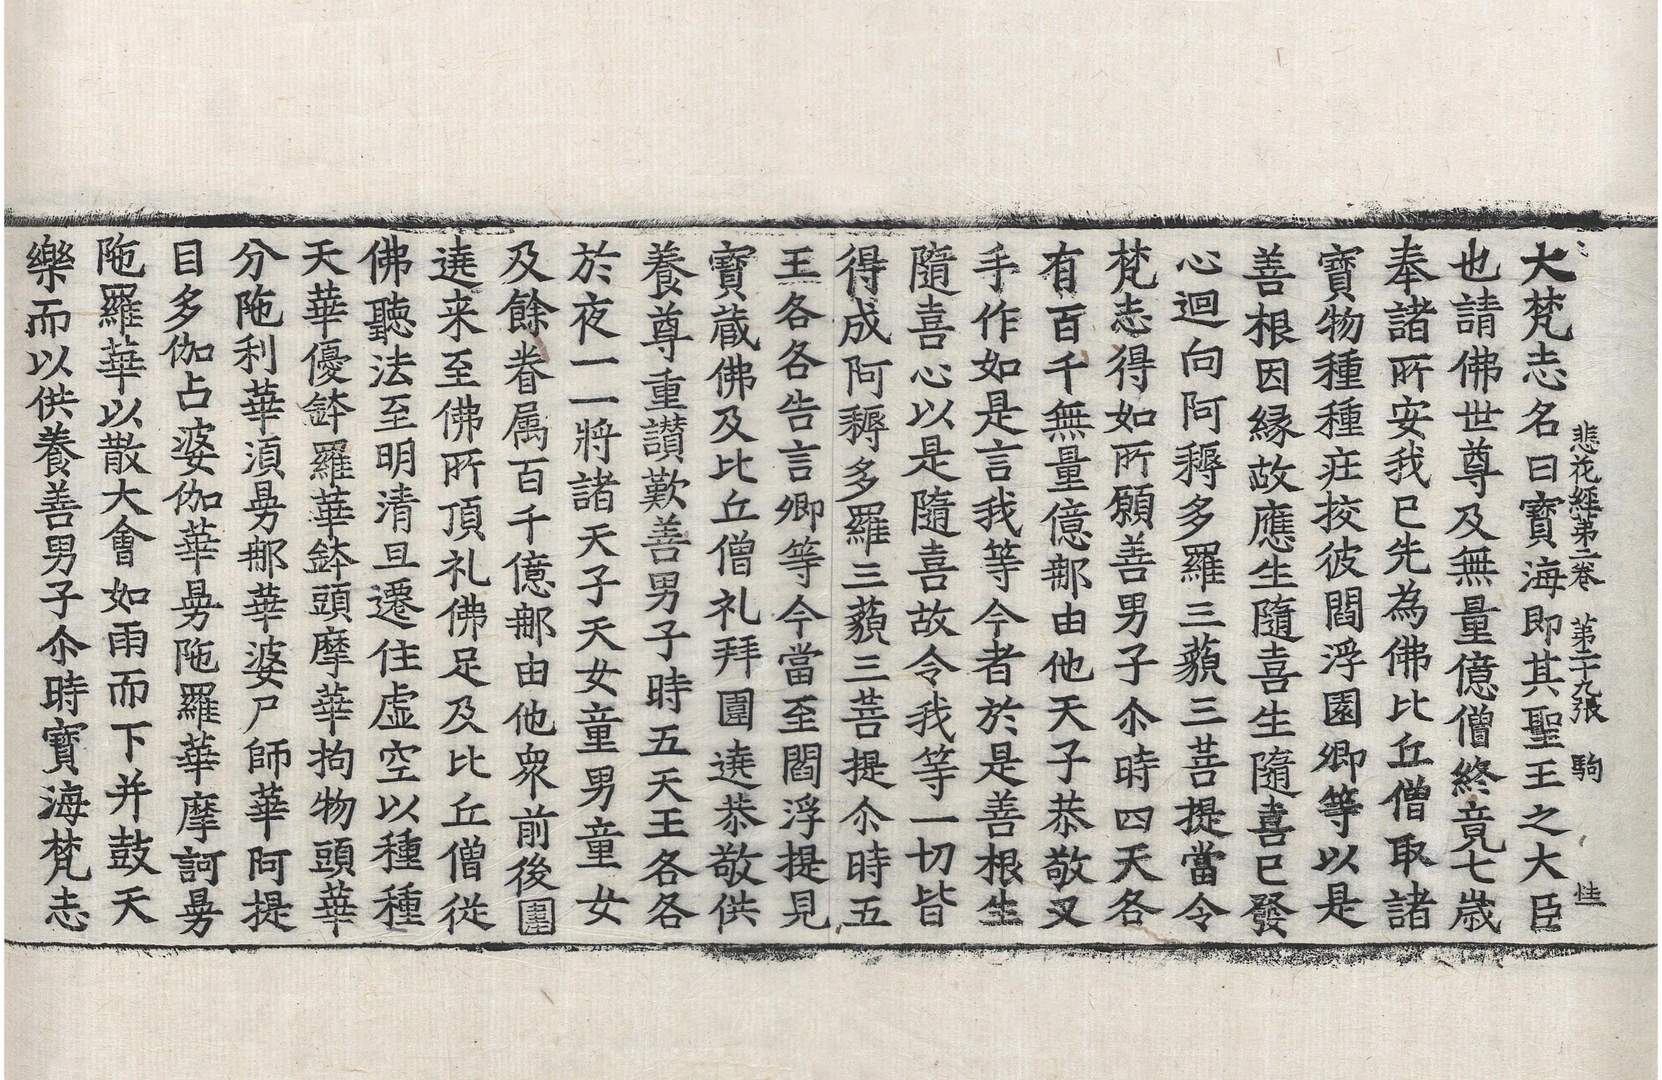 悲花經第二卷 第二十九張 駒 生
大梵志名曰寶海即其聖王之大臣
也請佛世尊及無量億僧終竟七歲
奉諸所安我已先為佛比丘僧取諸
寶物種種庄挍彼閻浮園卿等以是
善根因縁故應生隨喜生隨喜已發
心迴向阿耨多羅三藐三菩提當令
梵志得如所願善男子尒時四天各
有百千無量億那由他天子恭敬叉
手作如是言我等今者於是善根生
隨喜心以是隨喜故令我等一切皆
得成阿耨多羅三藐三菩提尒時五
王各各告言卿等今當至閻浮提見
寶蔵佛及比丘僧礼拜圍遶恭敬供
養尊重讃歎善男子時五天王各各
於夜一一將諸天子天女童男童女
及餘眷属百千億那由他衆前後圍
遶来至佛所頂礼佛足及比丘僧従
佛聽法至明清旦遷住虛空以種種
天華優鉢羅華鉢頭摩華拘物頭華
分陁利華湏曼那華婆尸師華阿提
目多伽占婆伽華曼陁羅華摩訶曼
陁羅華以散大會如雨而下并鼓天
樂而以供養善男子尒時寶海梵志